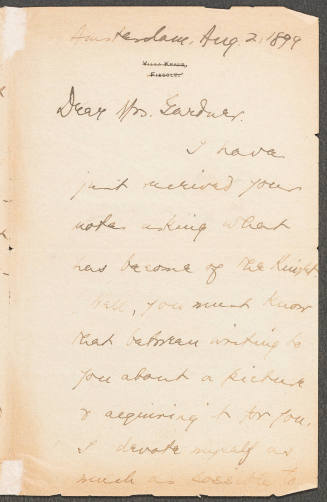 Amsterdam, Aug. 2, 1899
Dear Mrs. Gardner.
I have
just received your
note asking what
has become of the Knight
Well, you must know
that between writing to
you about a picture
& acquiring it for you,
I devote myself as
much as possible to